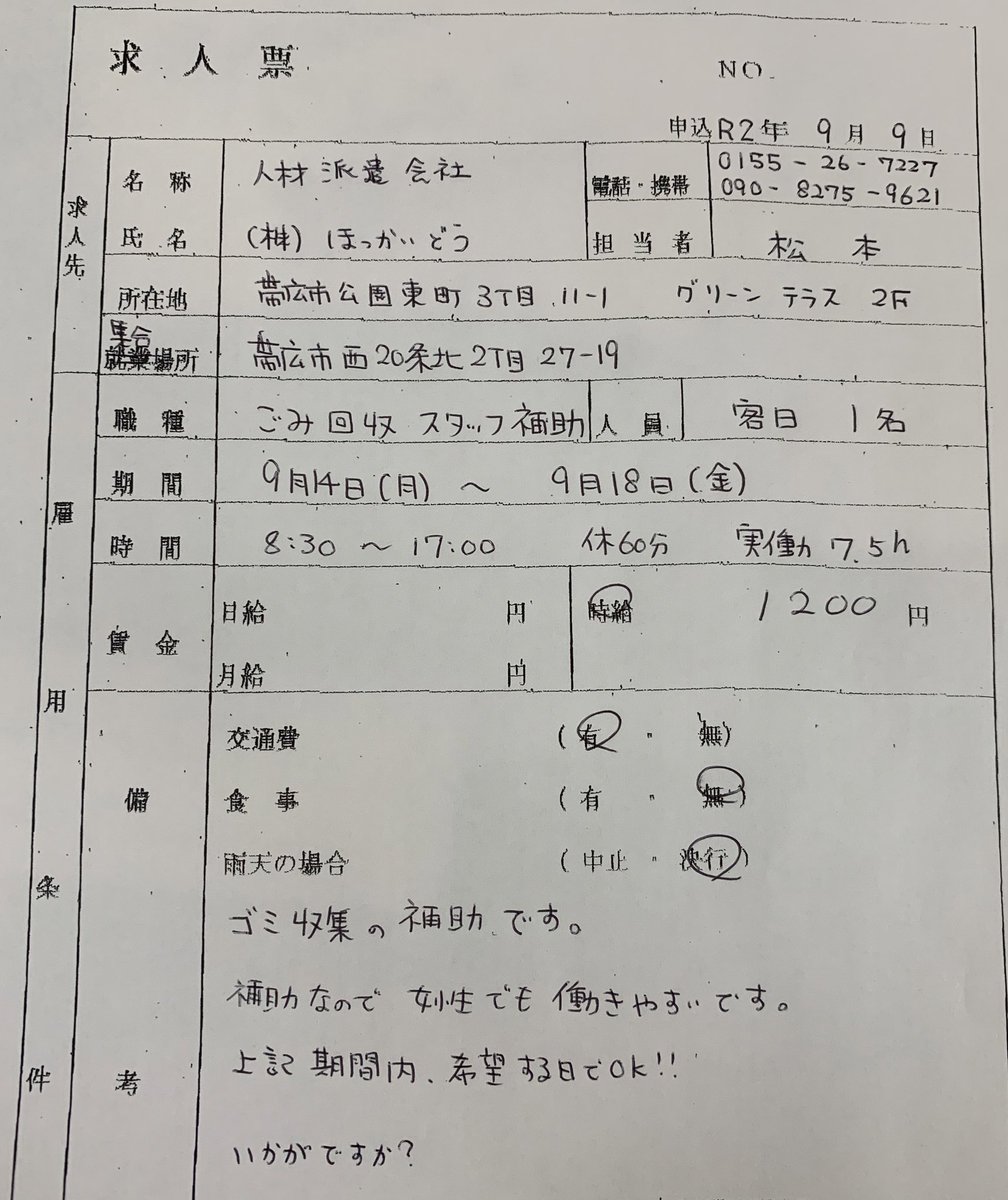 求人票 NO.
申込 R2年 9月 9日
求人先
名称 人材派遣会社 電話・携帯 0155-26-7227
090-8275-9621
氏名 (株) ほっかいどう 担当者 松本
所在地 帯広市公園東町3丁目 11-1 グリーンテラス 2F
集合
就業場所 帯広市西20条北2丁目27-19
雇用条件
職種 ごみ回収 スタッフ補助 人員 各日 1名
期間 9月14日(月) ~ 9月18日(金)
時間 8:30 ~ 17:00 休60分 実働 7.5h
賃金 日給 円 時給 1200円
月給 円
備考
交通費 (有・無)
食事 (有・無)
雨天の場合 (中止・決行)
ゴミ収集の補助です。
補助なので 女性でも働きやすいです。
上記期間内、希望する日でOK!!
いかがですか?